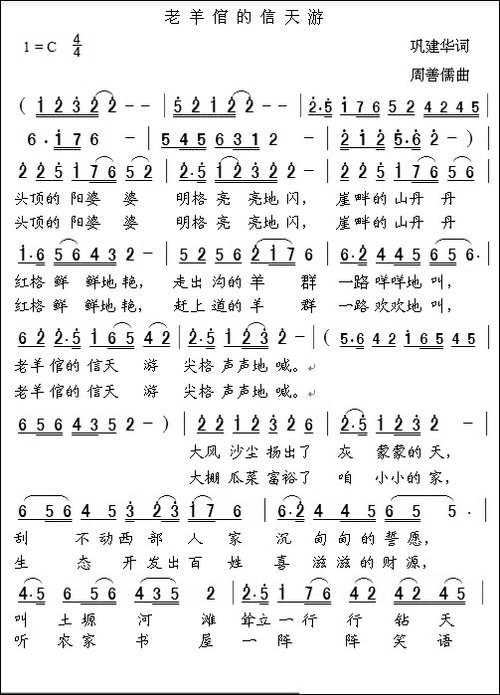 老羊倌的信天游
1=C 4/4 巩建华词
周善儒曲
( 1 2 3 2 2 - - | 5 2 1 2 2 - - | 2·5 1 7 6 5 2 4 2 4 5 |
6·1 7 6 - | 5 4 5 6 3 1 2 - | 2 1 2 5·6 2 - ) |
2 2 5 1 7 6 5 2 | 2·5 1 2 3 2 - | 2 1 2 1 7 6 5 6 |
头顶的 阳婆 婆 明格 亮 亮地 闪, 崖畔的 山丹 丹
头顶的 阳婆 婆 明格 亮 亮地 闪, 崖畔的 山丹 丹
1·6 5 6 4 3 2 - | 5 2 5 6 2 1 7 6 | 6·2 4 4 5 6 5 6· |
红格 鲜 鲜地 艳, 走出 沟的 羊 群 一路 咩咩地 叫,
红格 鲜 鲜地 艳, 赶上 道的 羊 群 一路 欢欢地 叫,
6 2 2·5 1 6 5 4 2 | 2·5 1 2 3 2 - | ( 5·6 4 2 1 6 4 5 |
老羊倌的 信天 游 尖格 声声地 喊。
老羊倌的 信天 游 尖格 声声地 喊。
6 5 6 5 4 3 5 2 - ) | 2 2 1 2 3 2 6 | 2·5 1 2 3 2 - |
大风 沙尘 扬出了 灰 蒙蒙的 天,
大棚 瓜菜 富裕了 咱 小小的 家,
6 5 6 4 5 3 2 3 2 1 | 6·2 4 4 5 6 5 5· |
刮 不动西 部 人 家 沉 甸甸的 誓愿,
生 态 开发出百 姓 喜 滋滋的 财源,
4·5 6 5 6 4 3 5 2 | 2·5 1 1 7 6 5 4 2 |
叫 土塬 河 滩 耸立一行 行 钻 天
听 农家 书 屋 一 阵 阵 笑 语